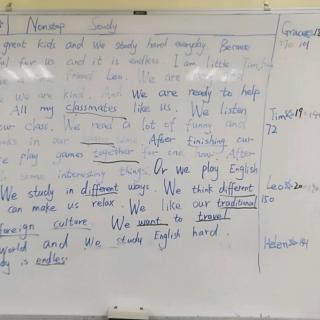 Nonstop Study
great kids and we study hard everyday Because
for us and it is endless. I am little Tim
friend Leo. We are
we are kind. And We are ready to help
All my classmates like us. We listen
our class. We read a lot of funny and
in our After finishing our
we play games together for one hour. After
some interesting things. Or we play English
We study in different ways. We think different
can make us relax. We like our traditional
foreign culture. We want to travel
World and We study English hard.
dy is endless
Grace
101
Tim 19
72
Leo 20
150
Helen 141